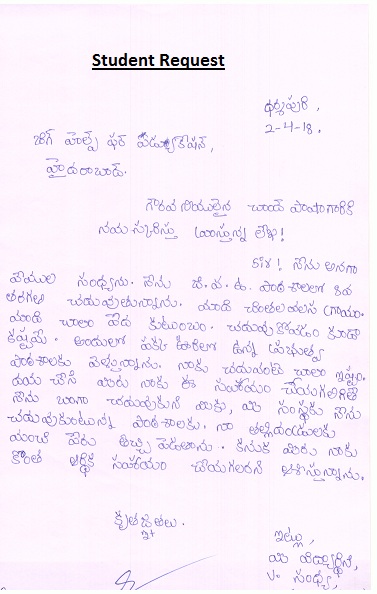 Student Request
ధర్మపురి,
2-4-18.
బిగ్ హెల్ప్ ఫర్ ఎడ్యుకేషన్,
హైదరాబాద్.
గౌరవనీయులైన చాంద్ పాషాగారికి
నమస్కరిస్తు వ్రాస్తున్న లేఖ!
సార్! నేను అనగా
వేముల సంధ్యను. నేను జి.ప.ఉ. పాఠశాలలో 8వ
తరగతి చదువుతున్నాను. మాది చింతలవలస గ్రామం.
మాది చాలా పేద కుటుంబం. చదువుకోవడం కూడా
కష్టమే. అందులో పక్క ఊరిలో ఉన్న ప్రభుత్వ
పాఠశాలకు వెళ్తున్నాను. నాకు చదువంటే చాలా ఇష్టం.
దయ చేసి మీరు నాకు ఈ సహాయం చేయగలిగితే
నేను బాగా చదువుకుని మీకు, మీ సంస్థకు నేను
చదువుకుంటున్న పాఠశాలకు, నా తల్లిదండ్రులకు
మంచి పేరు తెచ్చి పెడతాను. కనుక మీరు నాకు
కొంత ఆర్థిక సహాయం చేయగలరని ఆశిస్తున్నాను.
కృతజ్ఞతలు.
ఇట్లు,
మీ విద్యార్థిని,
V. సంధ్య,